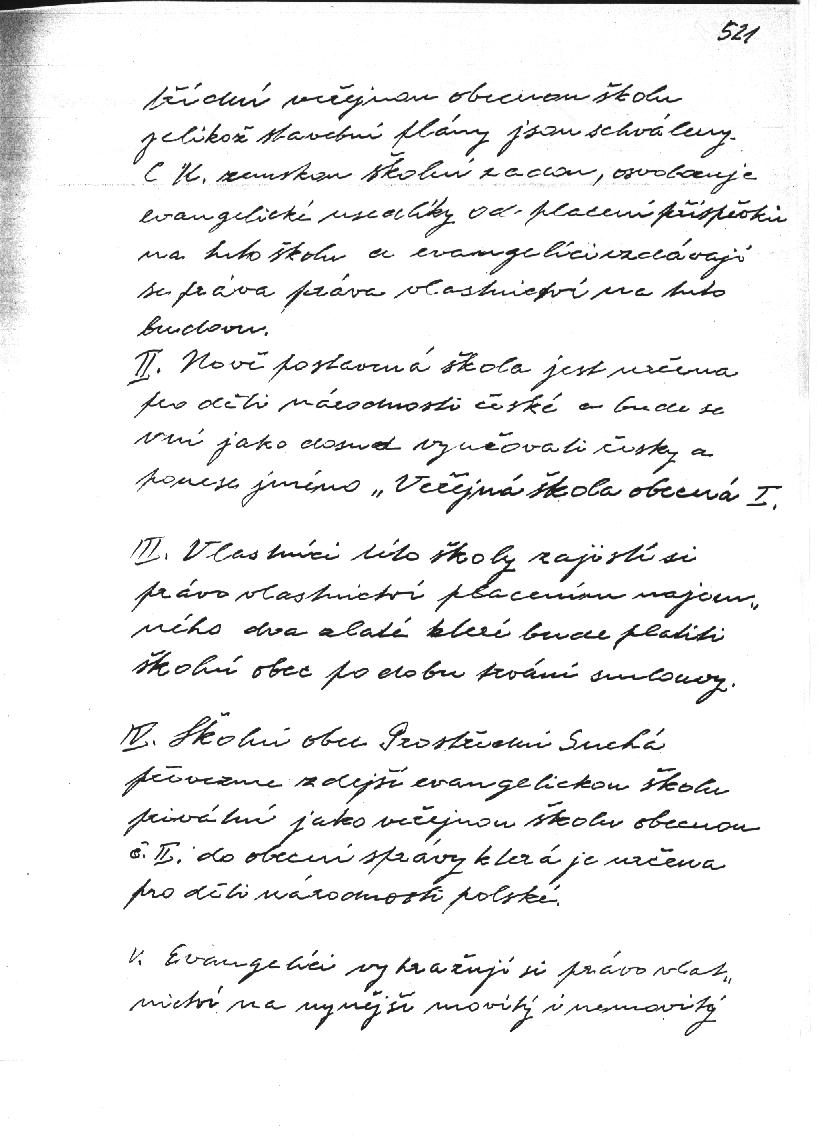 521
třídní veřejnou obecnou školu
jelikož stavební plány jsou schváleny
C K. zemskou školní radou, osvobozuje
evangelické usedlíky od placení příspěvků
na tuto školu a evangelíci vzdávají
se práva práva vlastnictví na tuto
budovu.
II. Nově postavená škola jest určena
pro děti národnosti české a bude se
v ní jako dosud vyučovati česky a
ponese jméno „Veřejná škola obecná I.
III. Vlastníci této školy zajistí si
právo vlastnictví placením najem„
ného dva zlaté které bude platiti
školní obec po dobu trvání smlouvy.
IV. Školní obec Prostřední Suchá
převezme zdejší evangelickou školu
privátní jako veřejnou školu obecnou
č. II. do obecní správy která je určena
pro děti národnosti polské.
V. Evangelíci vyhražují si právo vlast„
nictví na nynější movitý i nemovitý